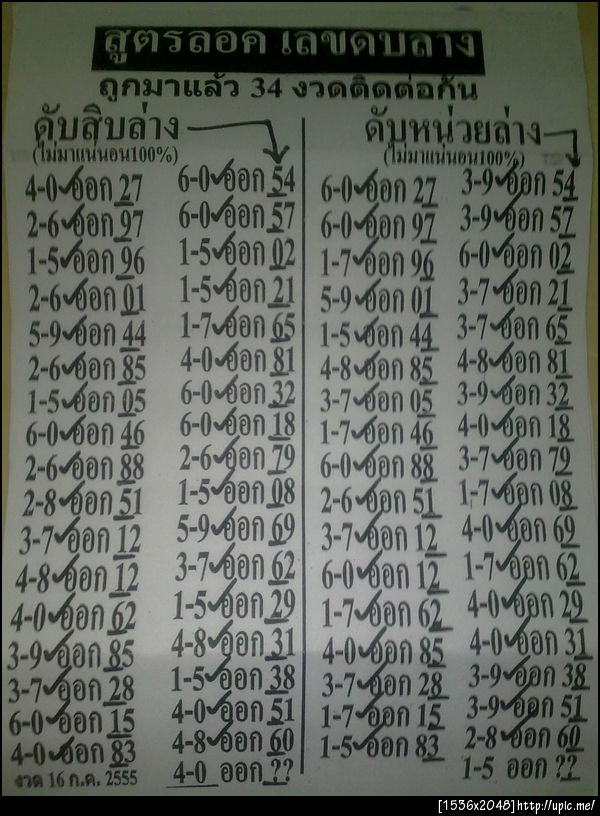 สูตรลอค เลขดับล่าง
ถูกมาแล้ว 34 งวดติดต่อกัน
ดับสิบล่าง
(ไม่มาแน่นอน100%)
4-0 ออก 27
2-6 ออก 97
1-5 ออก 96
2-6 ออก 01
5-9 ออก 44
2-6 ออก 85
1-5 ออก 05
6-0 ออก 46
2-6 ออก 88
2-8 ออก 51
3-7 ออก 12
4-8 ออก 12
4-0 ออก 62
3-9 ออก 85
3-7 ออก 28
6-0 ออก 15
4-0 ออก 83
งวด 16 ก.ค. 2555
6-0 ออก 54
6-0 ออก 57
1-5 ออก 02
1-5 ออก 21
1-7 ออก 65
4-0 ออก 81
6-0 ออก 32
6-0 ออก 18
2-6 ออก 79
1-5 ออก 08
5-9 ออก 69
3-7 ออก 62
1-5 ออก 29
4-8 ออก 31
1-5 ออก 38
4-0 ออก 51
4-8 ออก 60
4-0 ออก ??
ดับหน่วยล่าง
(ไม่มาแน่นอน100%)
6-0 ออก 27
6-0 ออก 97
1-7 ออก 96
5-9 ออก 01
1-5 ออก 44
4-8 ออก 85
3-7 ออก 05
1-7 ออก 46
6-0 ออก 88
2-6 ออก 51
3-7 ออก 12
6-0 ออก 12
1-7 ออก 62
4-0 ออก 85
3-7 ออก 28
1-7 ออก 15
1-5 ออก 83
3-9 ออก 54
3-9 ออก 57
6-0 ออก 02
3-7 ออก 21
3-7 ออก 65
4-8 ออก 81
3-9 ออก 32
4-0 ออก 18
3-7 ออก 79
1-7 ออก 08
4-0 ออก 69
1-7 ออก 62
4-0 ออก 29
4-0 ออก 31
3-9 ออก 38
3-9 ออก 51
2-8 ออก 60
1-5 ออก ??
[1536x2048]http://upic.me/